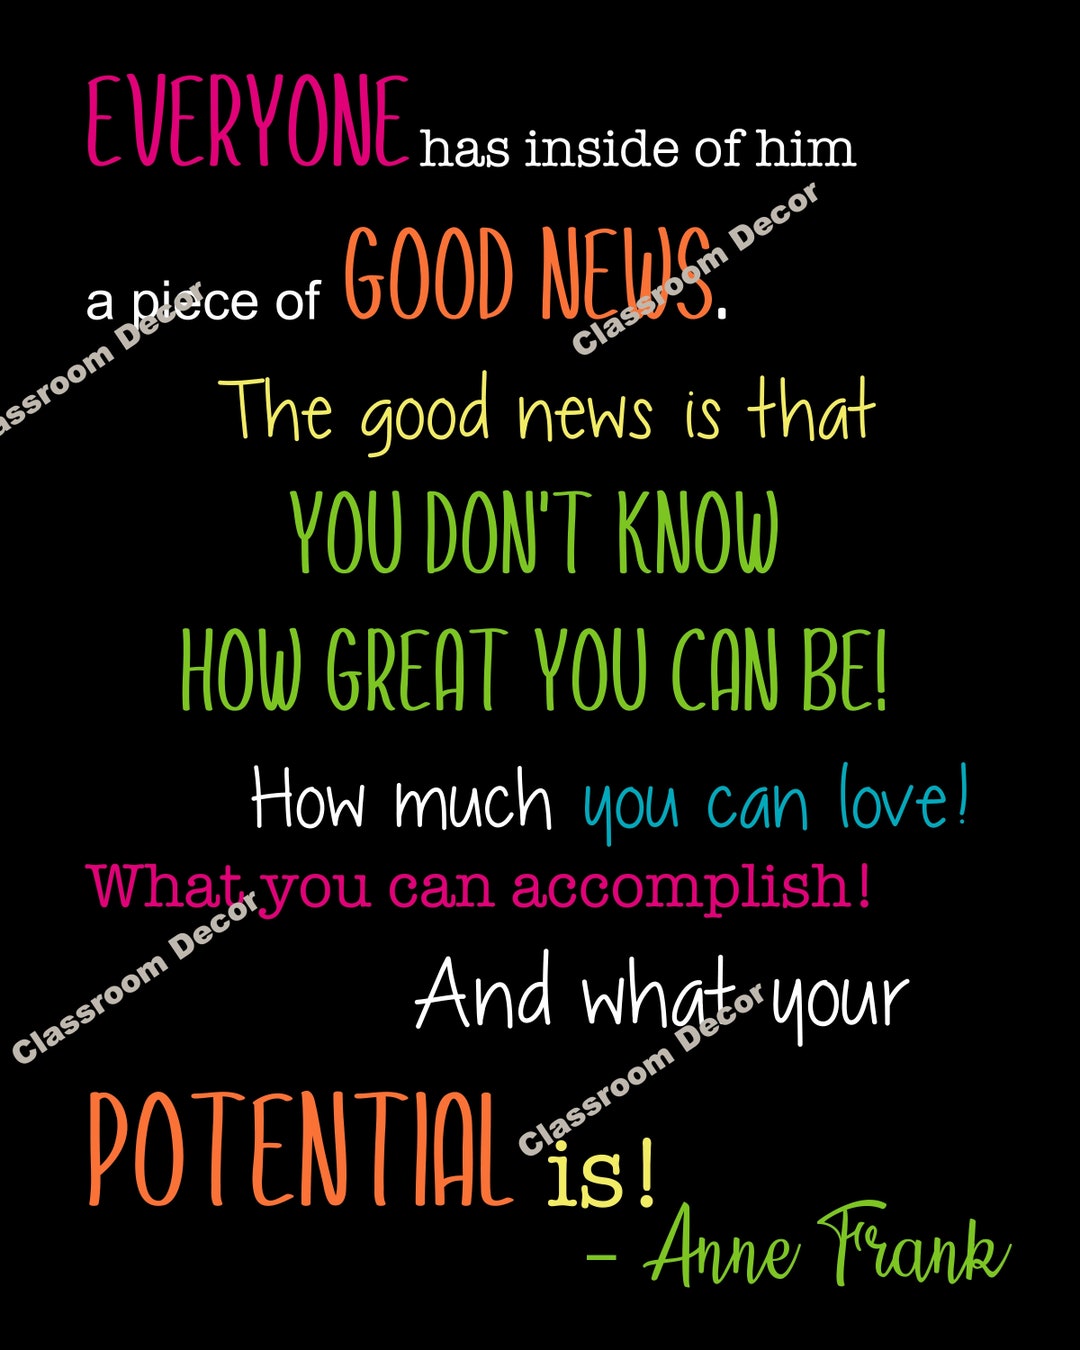 EVERYONE has inside of him
a piece of GOOD NEWS.
The good news is that
YOU DON'T KNOW
HOW GREAT YOU CAN BE!
How much you can love!
What you can accomplish!
And what your
POTENTIAL is!
- Anne Frank
Classroom Decor
Classroom Decor
Classroom Decor
Classroom Decor